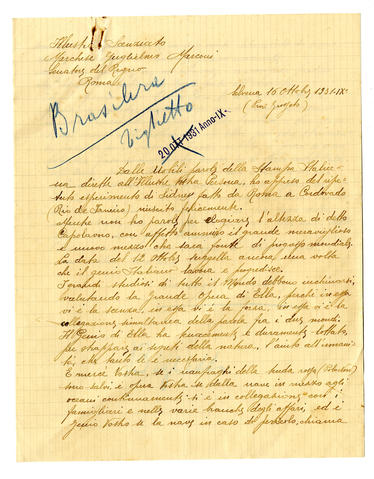 Illustre Scienziato
Marchese Guglielmo Marconi
Senatore del Regno
Roma
15 Ottobre 1931-IX°
Brasiliera
Biglietto
20 OTT 1931 Anno-IX
Dalle nobili parole della Stampa Italia-
na dirette all'Illustre Vostra Persona, ho appreso del
esperimento di fatto da Roma a Corcovado
(Rio de Janeiro) riuscito felicemente.
Capolavoro, con affetto ammiro il grande meraviglioso
e nuovo mezzo che sarà fonte di progresso mondiale.
La data del 12 Ottobre suggella ancora una volta
che il genio Italiano lavora e progredisce.
I grandi studiosi di tutto il Mondo debbono inchinarsi,
valutando la Grande opera di Ella, perchè in essa
vi è la scienza, in essa vi è la forza, in essa vi è la
collegazione simultanea della parola fra i due mondi.
Il Genio di Ella ha tenacemente e duramente lottato,
per strappare ai segreti della natura, l'aiuto all'umani-
tà, che tanto le è necessario.
E mercè Vostra, se i naufraghi della tenda rossa
sono salvi è opera Vostra se dalla nave in mezzo agli
oceani continuamente si è in collegazione con i
famigliari e nelle varie branche degli affari, ed è
genio Vostro se la nave in caso di pericolo, chiama